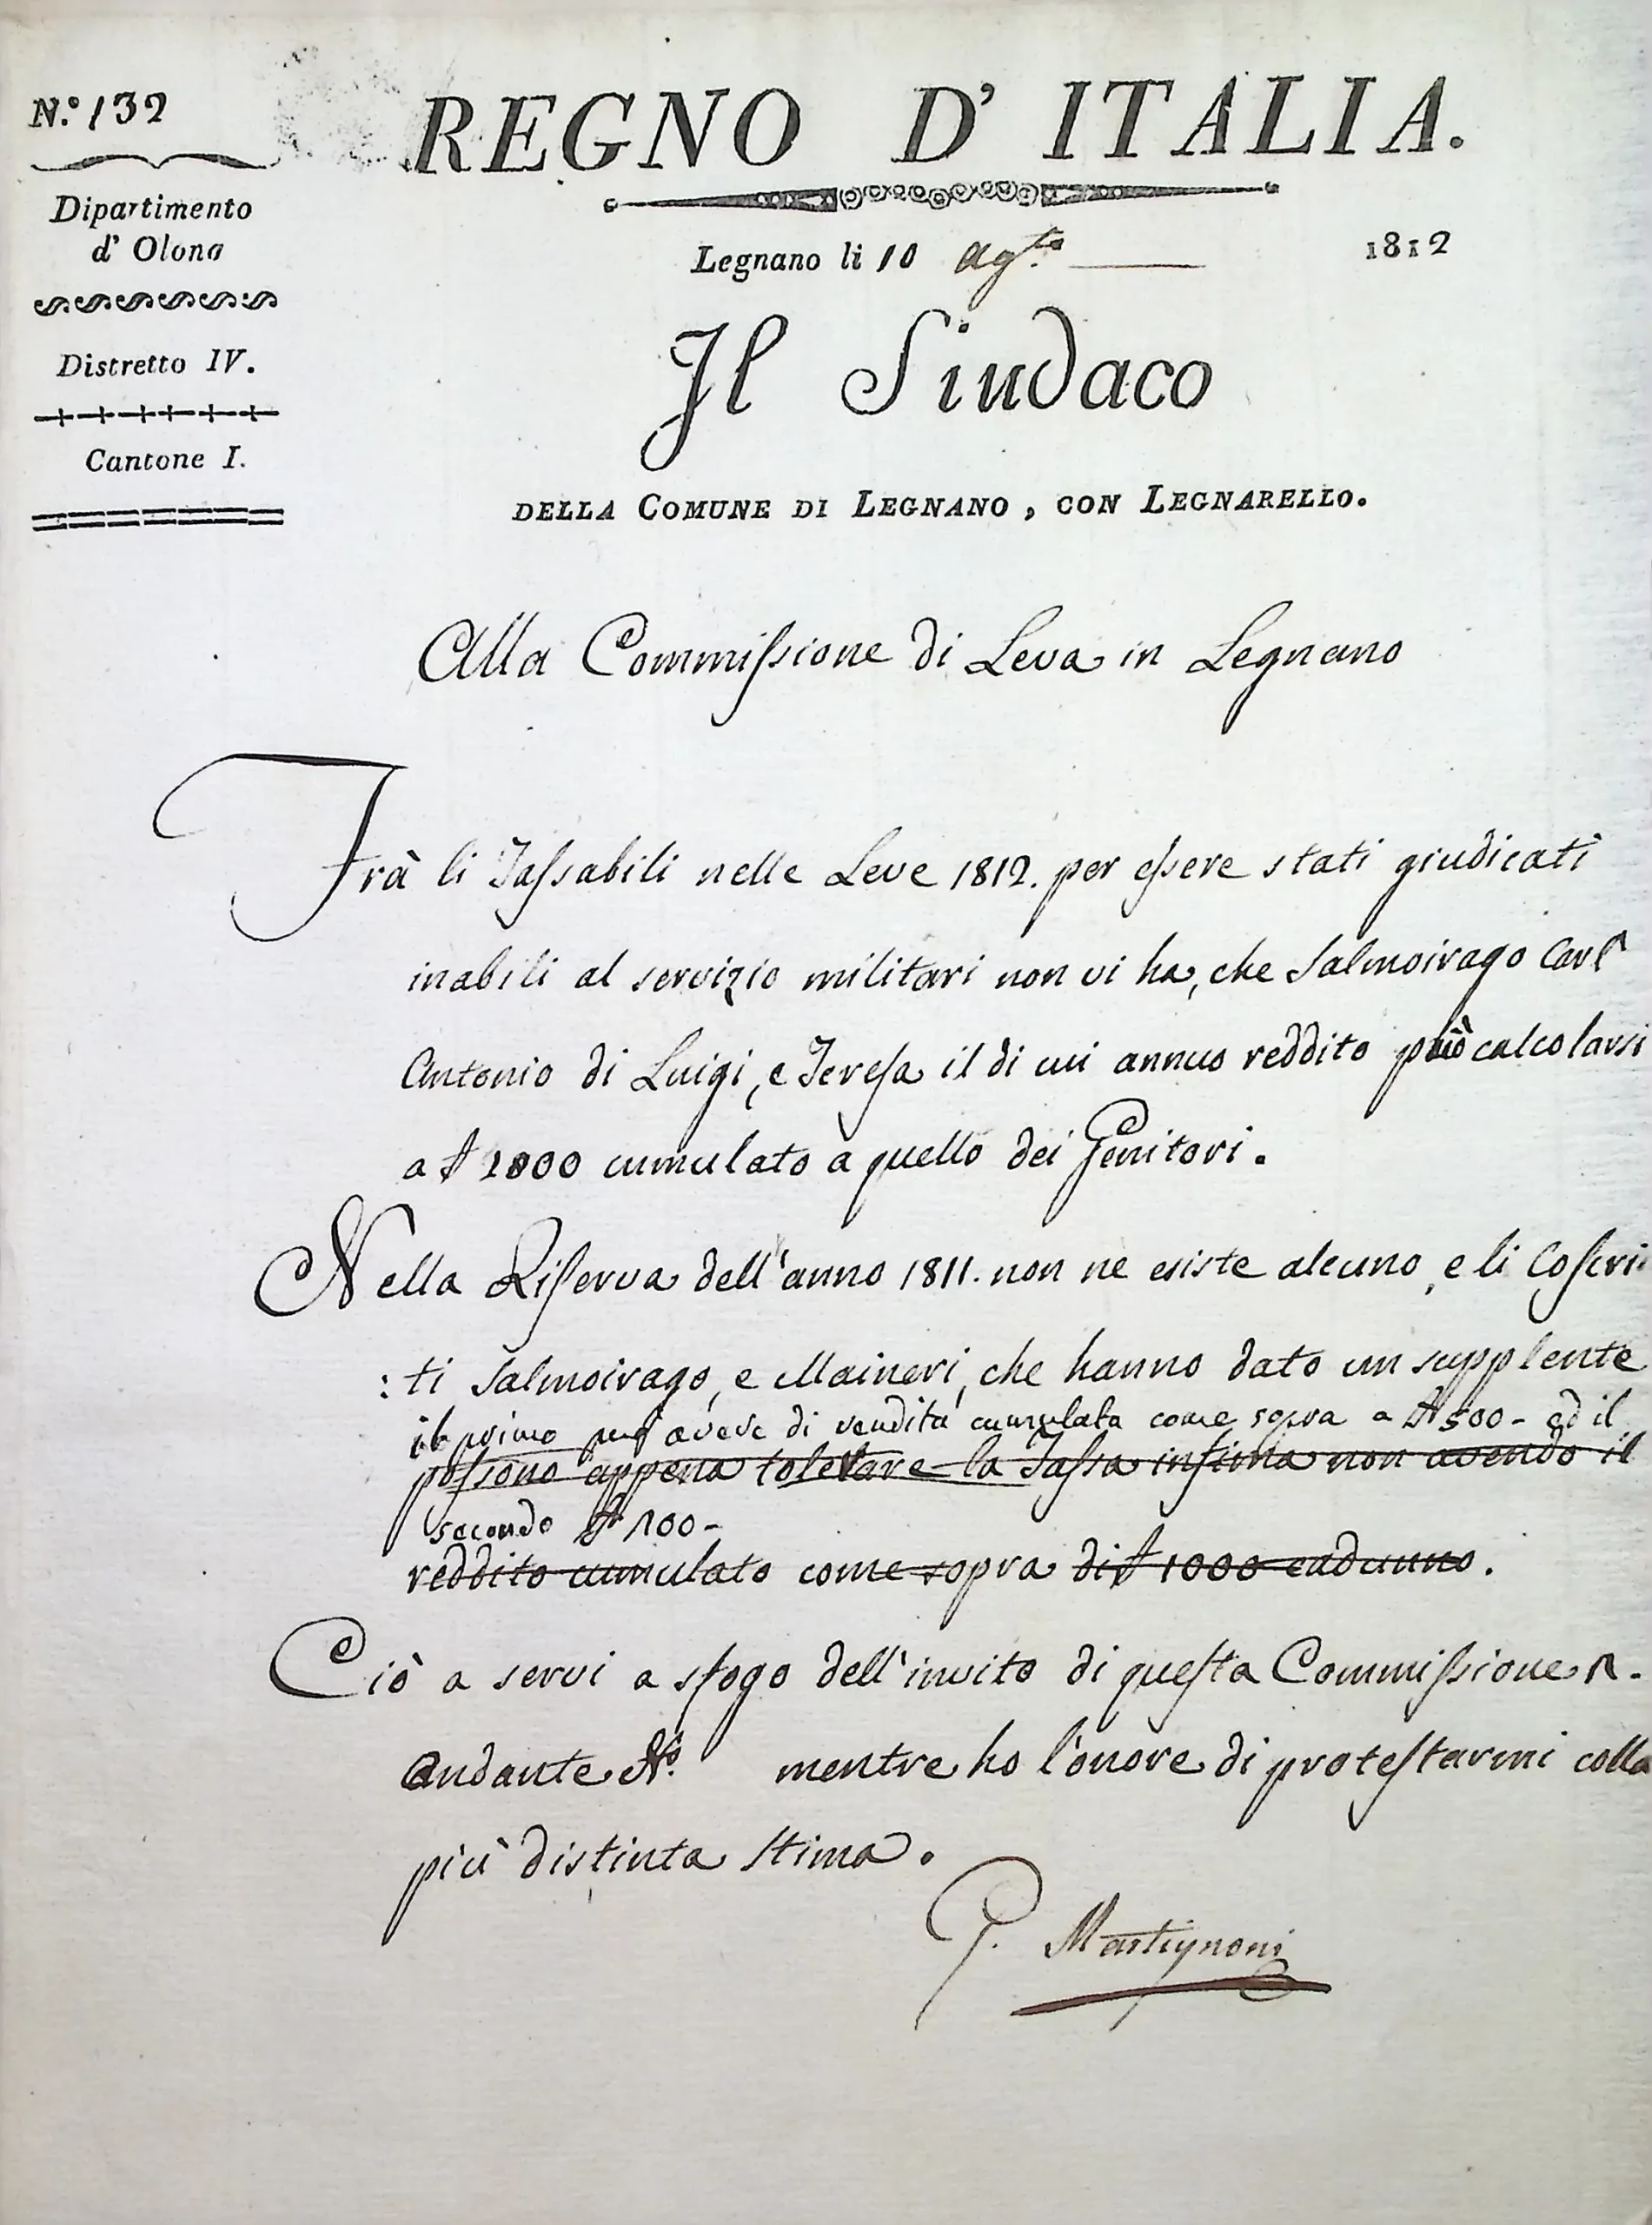 N.º 132
REGNO D' ITALIA.
Dipartimento
d' Olona
Legnano li 10 Ag.to 1812
Il Sindaco
Distretto IV.
Cantone I.
DELLA COMUNE DI LEGNANO, CON LEGNARELLO.
Alla Commissione di Leva in Legnano
Frà li Tassabili nelle Leve 1812. per essere stati giudicati
inabili al servizio militari non vi ha, che Salmoirago Carl'
Antonio di Luigi, e Teresa il di cui annuo reddito può calcolarsi
a 1000 cumulato a quello dei Genitori.
Nella Riserva dell'anno 1811. non ne esiste alcuno, e li Coscri-
:ti Salmoirago, e Maineri, che hanno dato un supplente
il primo può avere di rendita cumulata come sopra a 500 - ed il
possono appena tolerare la Tassa infima non avendo il
secondo 100 -
reddito cumulato come sopra di 1000 caduno.
Ciò a servi a sfogo dell'invito di questa Commissione
andante N.º mentre ho l'onore di protestarmi colla
più distinta stima.
G. Martignoni